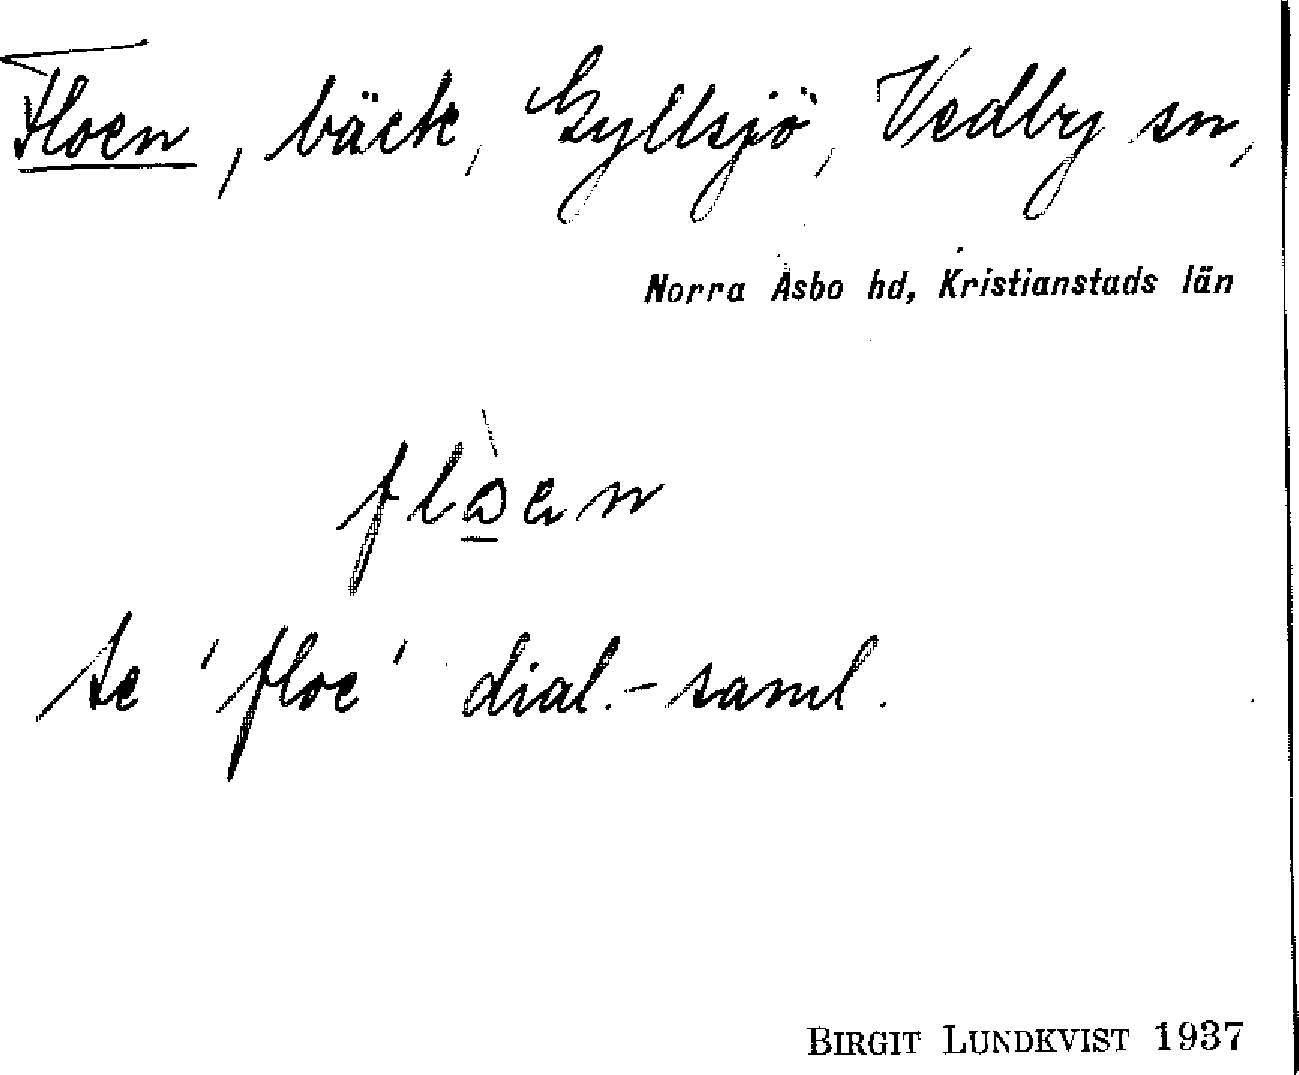 Floen, bäck, Gyllsjö, Vedby sn,
Norra Åsbo hd, Kristianstads län
se 'floe' dial.-saml.
BIRGIT LUNDKVIST 1937